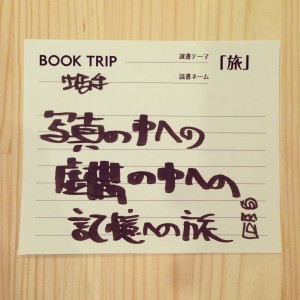 BOOK TRIP 選書テーマ 「旅」
読書ネーム
写真の中への
の中への
記憶への旅